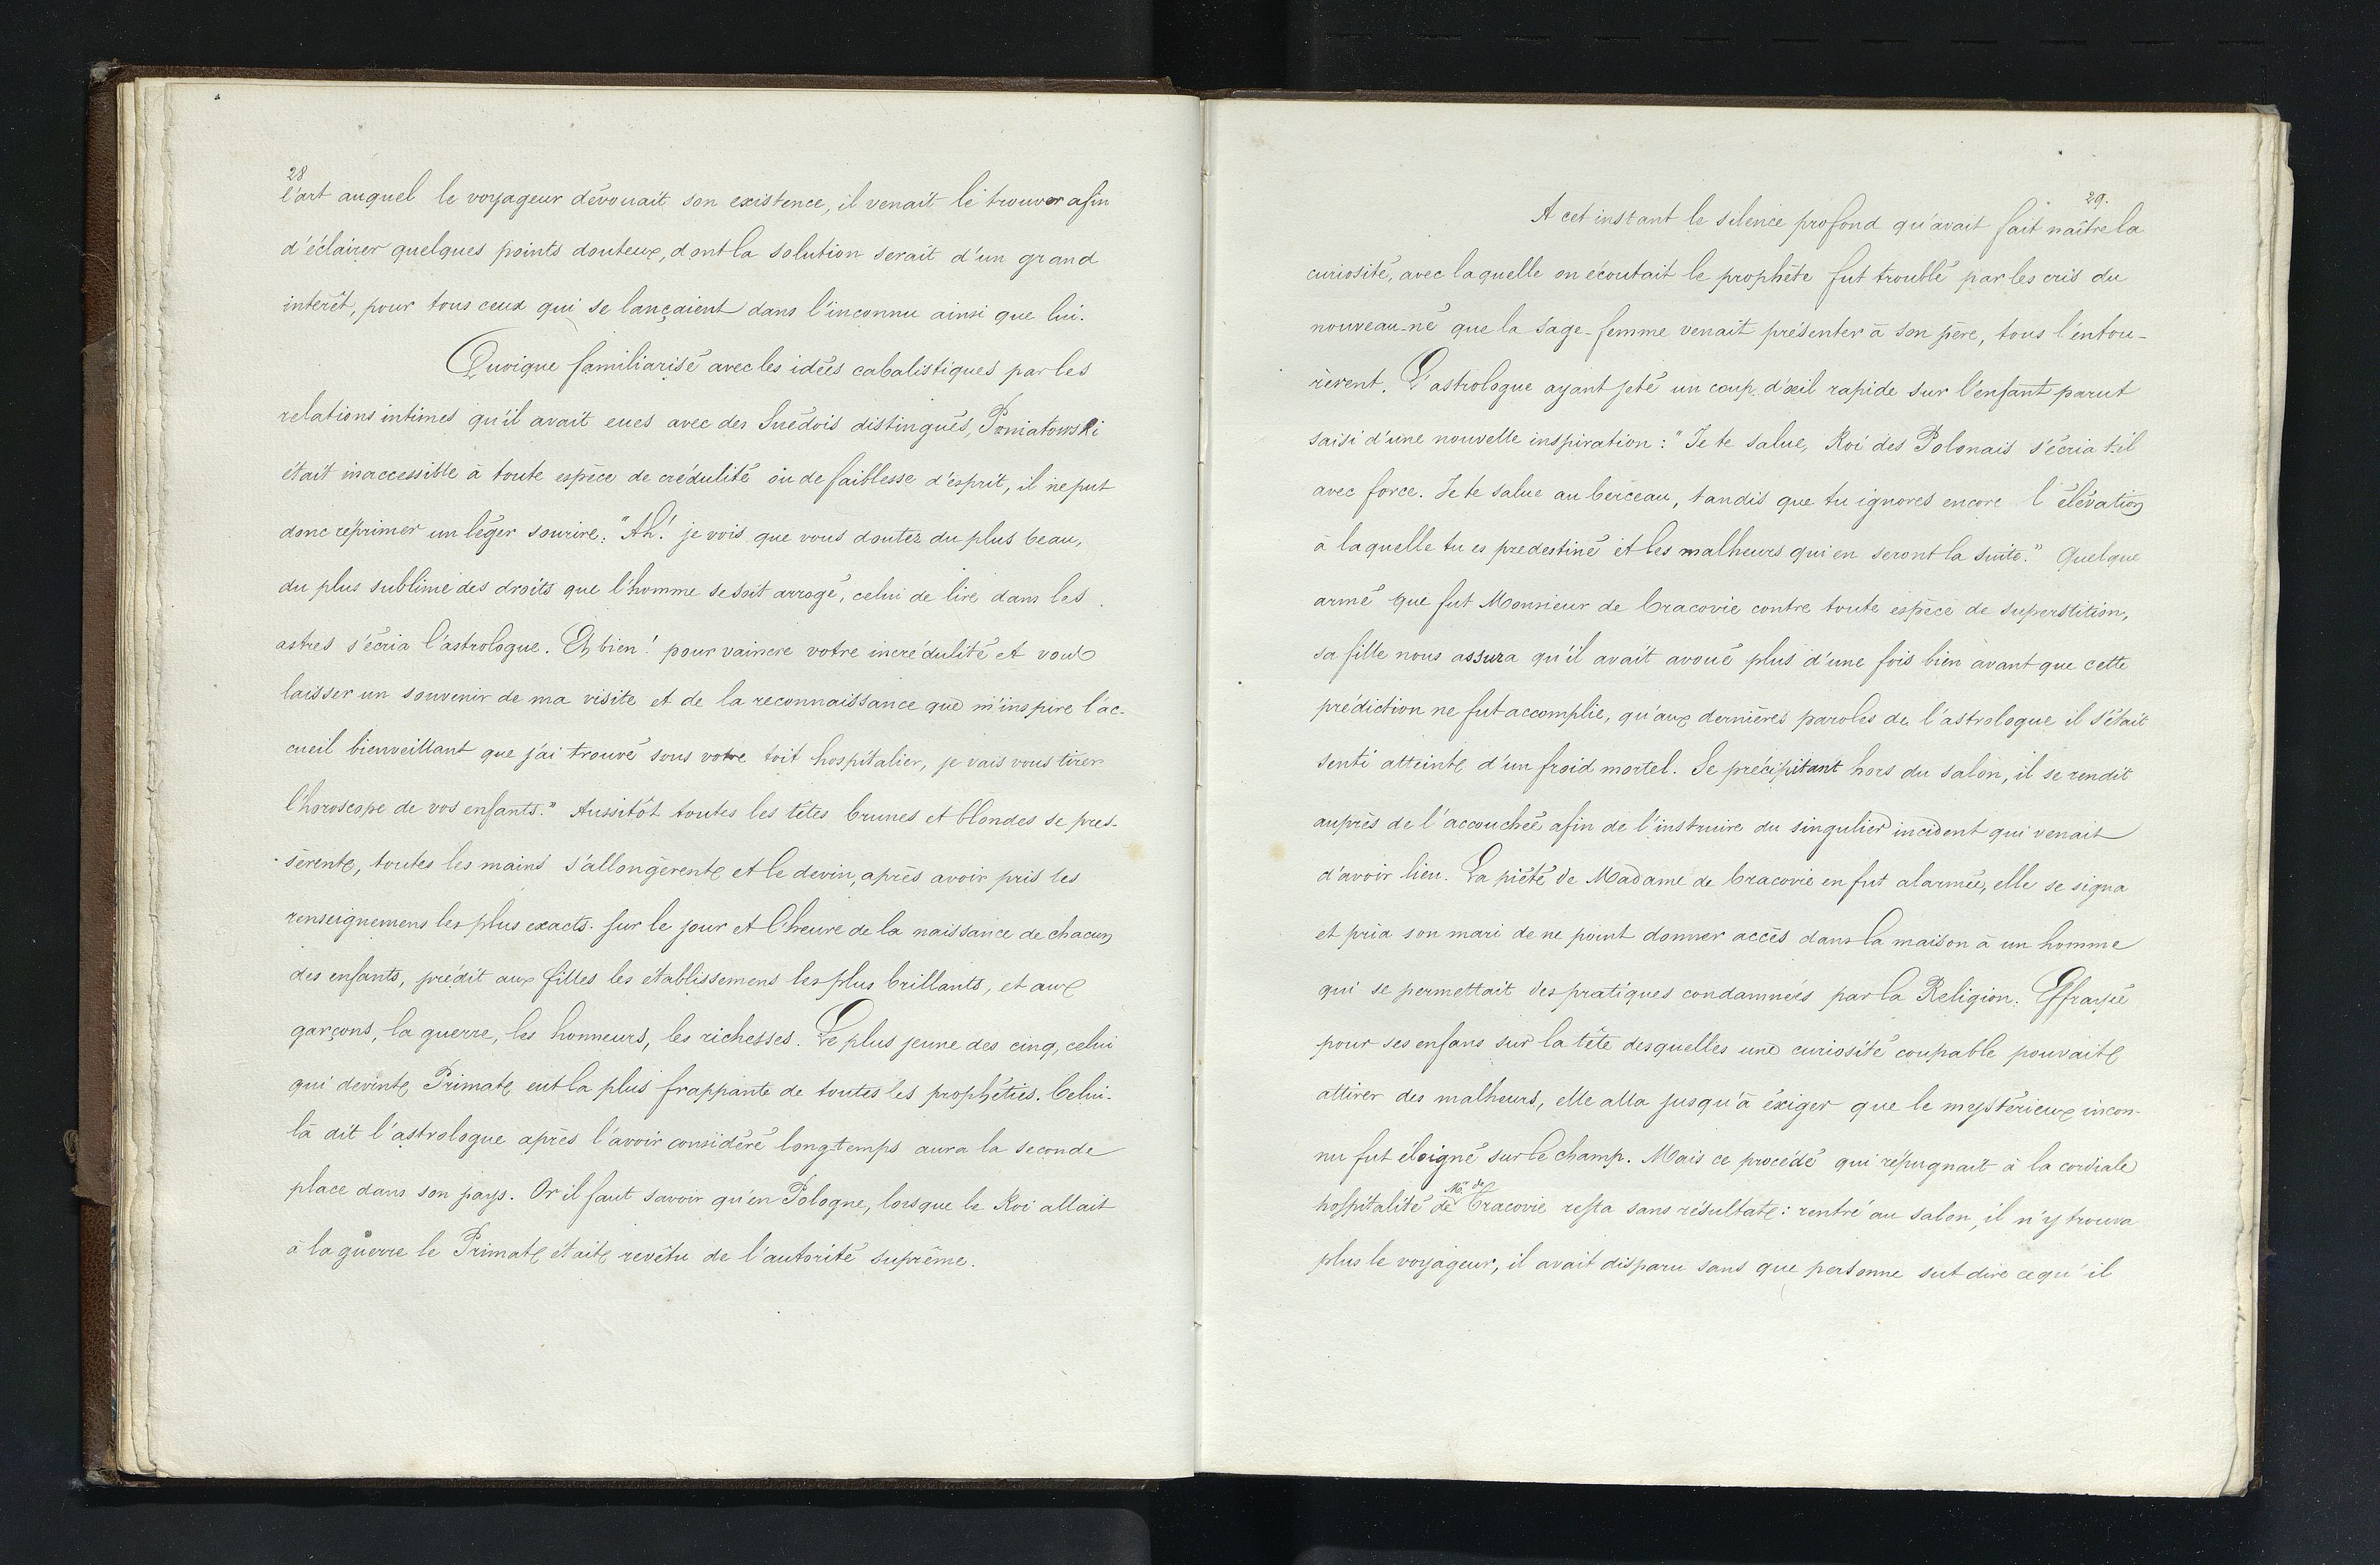 28
l'art auquel le voyageur dévouait son existence, il venait le trouver afin
d'éclairer quelques points douteux, dont la solution serait d'un grand
interêt, pour tous ceux qui se lançaient dans l'inconnu ainsi que lui.
Quoique familiarisé avec les idées cabalistiques par les
relations intimes qu'il avait eues avec des Suédois distingués, Poniatowski
était inaccessible à toute espèce de crédulité ou de faiblesse d'esprit, il ne put
donc réprimer un léger sourire: "Ah! je vois que vous doutez du plus beau,
du plus sublime des droits que l'homme se soit arrogé, celui de lire dans les
astres s'écria l'astrologue. Eh bien! pour vaincre votre incrédulité et vous
laisser un souvenir de ma visite et de la reconnaissance que m'inspire l'ac-
cueil bienveillant que j'ai trouvé sous votre toit hospitalier, je vais vous tirer
l'horoscope de vos enfants." Aussitôt toutes les têtes brunes et blondes se pres-
sèrent, toutes les mains s'allongèrent et le devin, après avoir pris les
renseignemens les plus exacts. sur le jour et l'heure de la naissance de chacun
des enfants, prédit aux filles les établissemens les plus brillants, et aux
garçons, la guerre, les honneurs, les richesses. Le plus jeune des cinq, celui
qui devint Primat eut la plus frappante de toutes les prophéties. Celui-
là dit l'astrologue après l'avoir considéré longtemps aura la seconde
place dans son pays. Or il faut savoir qu'en Pologne, lorsque le Roi allait
à la guerre le Primat était revêtu de l'autorité suprême.
29.
A cet instant le silence profond qu'avait fait naître la
curiosité, avec laquelle on écoutait le prophète fut troublé par les cris du
nouveau-né que la sage-femme venait présenter à son père, tous l'entou-
rèrent. L'astrologue ayant jeté un coup d'œil rapide sur l'enfant parut
saisi d'une nouvelle inspiration: "Je te salue, Roi des Polonais s'écria t-il
avec force. Je te salue au berceau, tandis que tu ignores encore l'élévation
à laquelle tu es predestiné et les malheurs qui en seront la suite." Quelque
armé que fut Monsieur de Cracovie contre toute espèce de superstition,
sa fille nous assura qu'il avait avoué plus d'une fois bien avant que cette
prédiction ne fut accomplie, qu'aux dernières paroles de l'astrologue il s'était
senti atteint d'un froid mortel. Se précipitant hors du salon, il se rendit
auprès de l'accouchée afin de l'instruire du singulier incident qui venait
d'avoir lieu. La piété de Madame de Cracovie en fut alarmée, elle se signa
et pria son mari de ne point donner accès dans la maison à un homme
qui se permettait des pratiques condamnées par la Religion. Effrayée
pour ses enfans sur la tête desquelles une curiosité coupable pouvait
attirer des malheurs, elle alla jusqu'à exiger que le mystérieux incon-
nu fut éloigné sur le champ. Mais ce procédé qui répugnait à la cordiale
hospitalité de Mr. de Cracovie resta sans résultat: rentré au salon, il n'y trouva
plus le voyageur, il avait disparu sans que personne sut dire ce qu'il